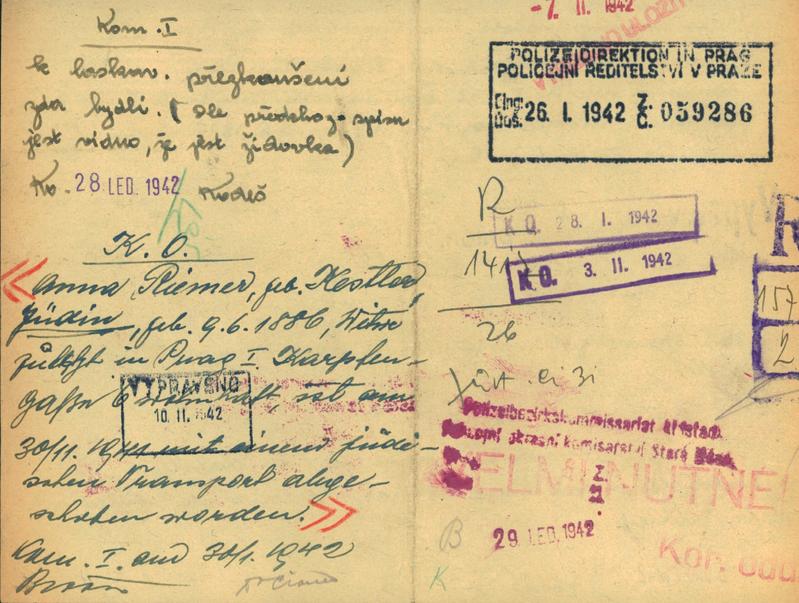 Kom. I
k laskav. přezkoušení
zda bydlí. (Dle předchoz. spisu
jest vidno, že jest židovka)
Ko. 28 LED. 1942 Kodeš
K. O.
Anna Riemer, geb. Kestler
Jüdin, geb. 9.6.1886, Witwe
zuletzt in Prag I. Karpfen-
gaße 6 wohnhaft, ist am
30/11. 1941 mit einem jüdi-
schen Transport abge-
schoben worden.
Kom. I. am 30/1. 1942
VYPRAVENO
10. II. 1942
-7. II. 1942
POLIZEIDIREKTION IN PRAG
POLICEJNÍ ŘEDITELSTVÍ V PRAZE
Eing. Doš. 26. I. 1942 Z. Č. 059286
R
K. O. 28. I. 1942
K. O. 3. II. 1942
26
Polizeibezirkskommissariat Altstadt
okresní komisařství Staré
29. LED. 1942
B
K
157
2